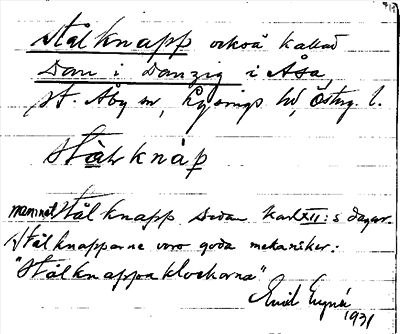 Stålknapp också kallad
Dan i Danzig i Åsa,
St. Åby sn, Lysings hd, Östrg. l.
Stålknàp
namnet Stålknapp sedan Karl XII:s dagar.
Stålknapparne voro goda mekaniker:
"Stålknappaklockorna"
1931